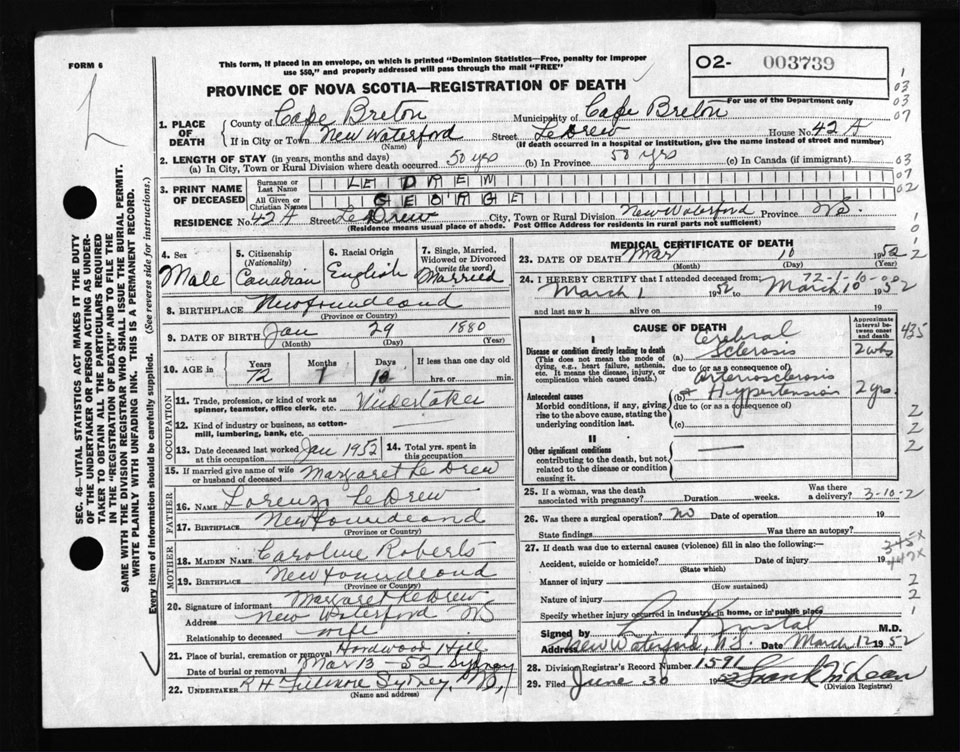 FORM 6
This form, if placed in an envelope, on which is printed "Dominion Statistics—Free, penalty for improper
use $50," and properly addressed will pass through the mail "FREE"
02- 003739
For use of the Department only
PROVINCE OF NOVA SCOTIA—REGISTRATION OF DEATH
1. PLACE OF DEATH
County of Cape Breton Municipality of Cape Breton
If in City or Town New Waterford Street LeDrew House No. 42 A
(Name) (If death occurred in a hospital or institution, give the name instead of street and number)
2. LENGTH OF STAY (in years, months and days)
(a) In City, Town or Rural Division where death occurred 50 yrs (b) In Province 50 yrs (c) In Canada (if immigrant)
3. PRINT NAME OF DECEASED
Surname or Last Name LE DREW
All Given or Christian Names GEORGE
RESIDENCE No. 42 A Street LeDrew City, Town or Rural Division New Waterford Province NS.
(Residence means usual place of abode. Post Office Address for residents in rural parts not sufficient)
4. Sex
Male
5. Citizenship
(Nationality)
Canadian
6. Racial Origin
English
7. Single, Married,
Widowed or Divorced
(write the word)
Married
8. BIRTHPLACE Newfoundland
(Province or Country)
9. DATE OF BIRTH Jan 29 1880
(Month) (Day) (Year)
10. AGE in Years Months Days If less than one day old
72 1 hrs. or min.
OCCUPATION
11. Trade, profession, or kind of work as
spinner, teamster, office clerk, etc. Undertaker
12. Kind of industry or business, as cotton-
mill, lumbering, bank, etc.
13. Date deceased last worked at this occupation Jan 1952
14. Total yrs. spent in this occupation
15. If married give name of wife
or husband of deceased Margaret LeDrew
FATHER
16. NAME Lorenzo LeDrew
17. BIRTHPLACE Newfoundland
(Province or Country)
MOTHER
18. MAIDEN NAME Caroline Roberts
19. BIRTHPLACE Newfoundland
(Province or Country)
20. Signature of informant Margaret LeDrew
Address New Waterford NS
Relationship to deceased wife
21. Place of burial, cremation or removal Hardwood Hill
Date of burial or removal Mar 13 - 52 Sydney
22. UNDERTAKER R H Fillmore Sydney, NS,
(Name and address)
MEDICAL CERTIFICATE OF DEATH
23. DATE OF DEATH Mar 10 1952
(Month) (Day) (Year)
72-1-10-00
24. I HEREBY CERTIFY that I attended deceased from:
March 1 1952 to March 10 1952
and last saw h alive on 19
CAUSE OF DEATH
Approximate interval between onset and death
I
Disease or condition directly leading to death
(This does not mean the mode of
dying, e.g., heart failure, asthenia,
etc. It means the disease, injury, or
complication which caused death.)
(a) Cerebral Sclerosis 2 wks
due to (or as a consequence of)
Antecedent causes
Morbid conditions, if any, giving
rise to the above cause, stating the
underlying condition last.
(b) Arteriosclerosis & Hypertension 2 yrs
due to (or as a consequence of)
(c)
II
Other significant conditions
contributing to the death, but not
related to the disease or condition
causing it.
25. If a woman, was the death
associated with pregnancy? Duration weeks. Was there a delivery? 3-10-2
26. Was there a surgical operation? no Date of operation 19
State findings Was there an autopsy?
27. If death was due to external causes (violence) fill in also the following:—
Accident, suicide or homicide? Date of injury 19
(State which)
Manner of injury
(How sustained)
Nature of injury
Specify whether injury occurred in industry, in home, or in public place
Signed by M.D.
Address New Waterford, N.S Date March 12 1952
28. Division Registrar's Record Number 1591
29. Filed June 30 1952 Frank McLean
(Division Registrar)
SEC. 46—VITAL STATISTICS ACT MAKES IT THE DUTY
OF THE UNDERTAKER OR PERSON ACTING AS UNDER-
TAKER TO OBTAIN ALL THE PARTICULARS REQUIRED
IN THE "REGISTRATION OF DEATH" AND TO FILE THE
SAME WITH THE DIVISION REGISTRAR WHO SHALL ISSUE THE BURIAL PERMIT.
WRITE PLAINLY WITH UNFADING INK. THIS IS A PERMANENT RECORD.
Every item of information should be carefully supplied. (See reverse side for instructions.)
1
03
03
07
03
07
02
1
0
1
2
435
2
2
2
345x
447x
2
2
1